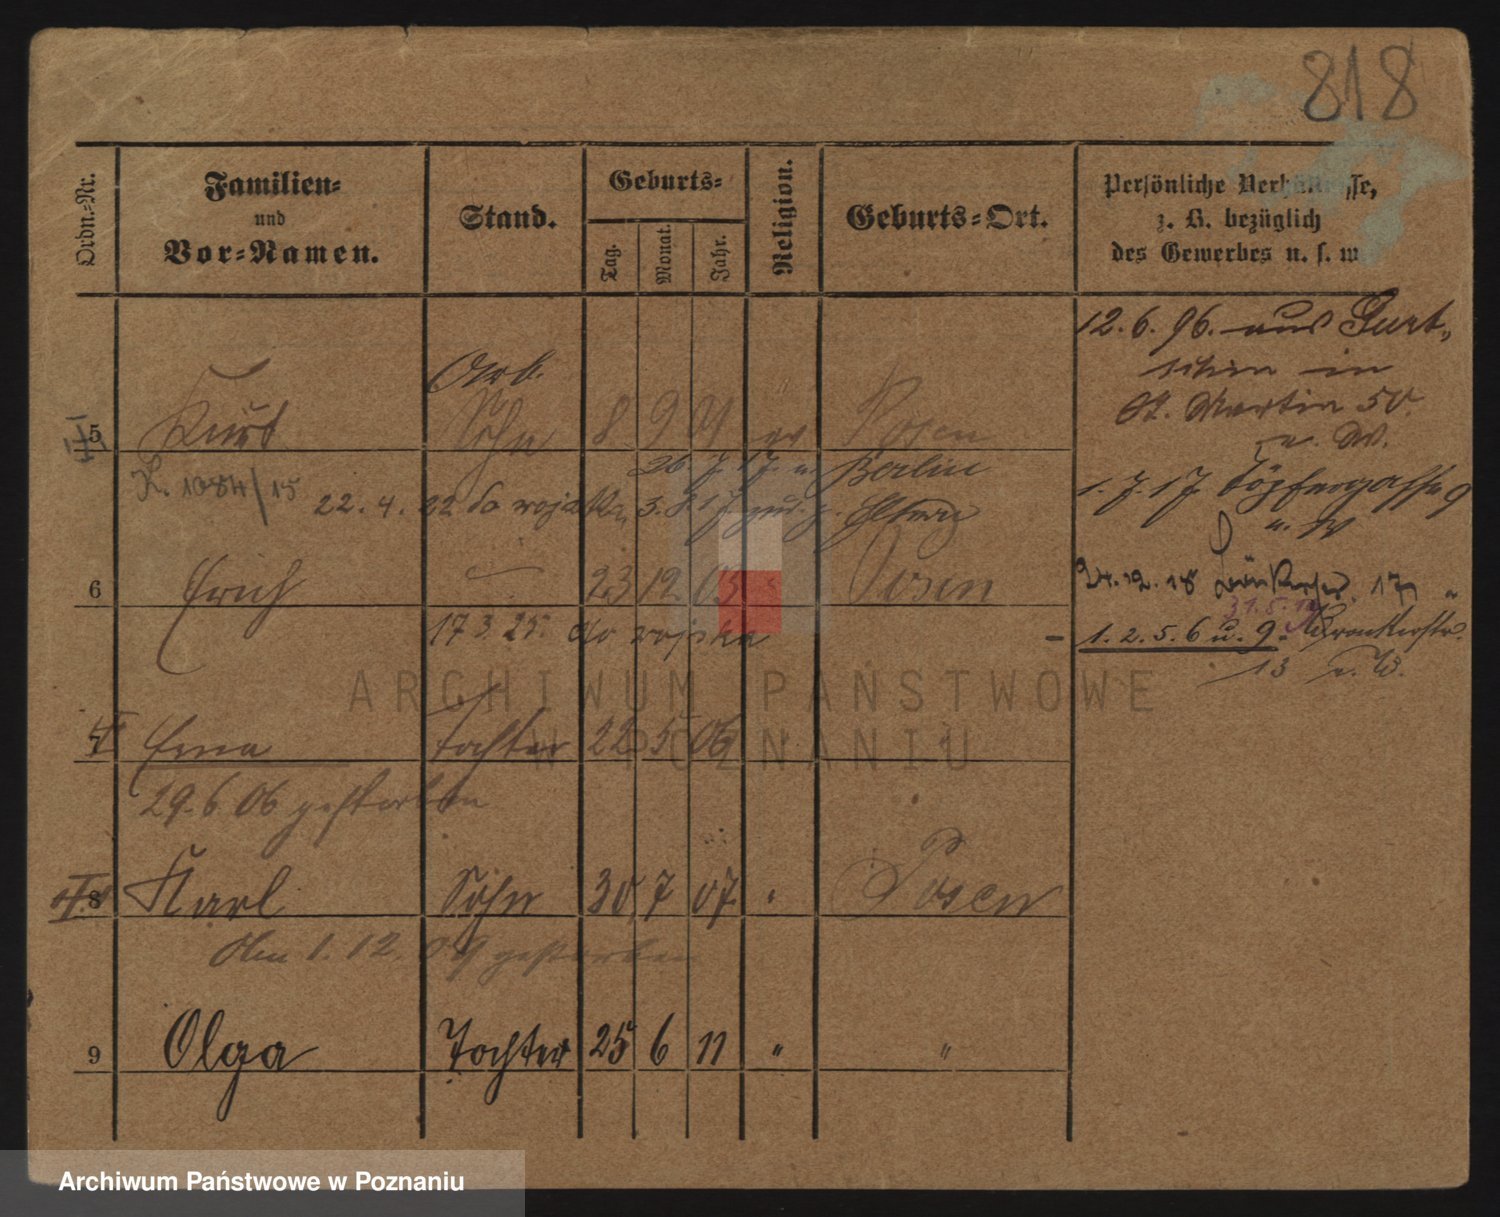 818
Ordn.-Nr.
Familien-
und
Vor-Namen.
Stand.
Geburts-
Tag.
Monat.
Jahr.
Religion.
Geburts-Ort.
Persönliche Verhältnisse,
z. B. bezüglich
des Gewerbes u. s. w.
12. 6. 96. aus
in
St. Martin 50.
z. W.
Arb.
5 Kurt Sohn 8 9 01 Posen
K. 1084/15
26. 7. 17. n. Berlin
22. 4. 22 do wojska, 3. 8 17 zur. z. Eltern
1. 7. 17 Töpfergasse 9
" W
6 Erich — 23 12 03 " Posen
24. 12. 18 17 "
31. 5. 19
17 3. 25. do wojska
— 1. 2. 5. 6 u. 9.
13 z. W.
7 Erna Tochter 22 5 06 " "
29. 6 06 gestorben
8 Karl Sohn 30 7 07 " Posen
Am 1. 12. 09 gestorben
9 Olga Tochter 25 6 11 " "
ARCHIWUM PAŃSTWOWE
W POZNANIU
Archiwum Państwowe w Poznaniu